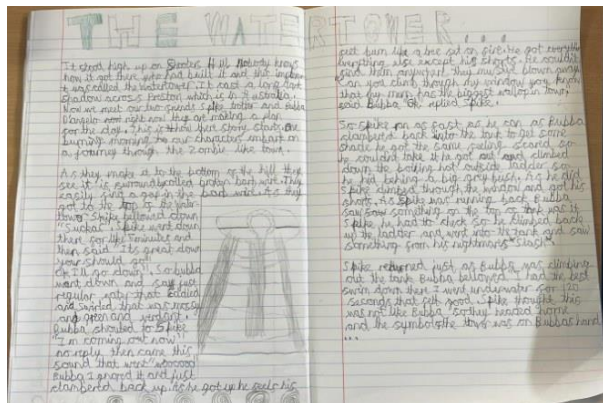 THE WATERTOWER...
It stood high up on Shooters Hill. Nobody knows
how it got there who had built it and the
it was called the Watertower. It cast a long dark
shadow across Preston which is in Australia.
Now we meet our two friends Spike Trotter and Bubba
D'angelo now right now they are making a plan
for the day. This is how there story starts. One
burning morning to our characters embark on
a journey through the Zombie like town.
As they make it to the bottom of the hill they
see it is surrounded broken barb wire. They
easily find a gap in the barb wire. As they
got to the top of the water
tower Spike bellowed down
"Sucka". Spike went down
there for like 5 minutes and
then said "It's great down
your should go"
"Ok I'll go down". So bubba
went down and saw just
regular water that eddied
and swirled that was mossy
and green and verdant.
Bubba shouted to Spike
"I'm coming out now"
no reply then came this
sound that went "wooooo
Bubba I gnored it and just
clambered back up. As he got up he feels his
feet burn like a bee sat on first. He got everything
everything else except his shorts. He couldn't
find them anywhere they must of blown away.
Can you climb through my window you know
that guyman has the biggest wallop in town.
said Bubba. Ok replied Spike.
So Spike ran as fast as he can as Bubba
clambered back into the tank to get some
shade he got the same feeling scared so
he couldn't take it he got out and climbed
down the boiling hot outside ladder. So
he hid behind a big grey bush. As he did
Spike climbed through the window and got his
shorts. As Spike was running back Bubba
saw saw something on the top of tank was it
Spike he had to check so he climbed back
up the ladder and went into the tank and saw
something from his nightmares "Slash"
Spike returned just as Bubba was climbing
out the tank Bubba bellowed I had the best
swim down there I went underwater for 120
seconds that felt good. Spike thought this
was not like Bubba so they headed home
and the symbol of the tower was on Bubbas hand
...